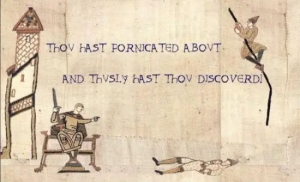 THOV HAST FORNICATED ABOVT
AND THVSLY HAST THOV DISCOVERD!